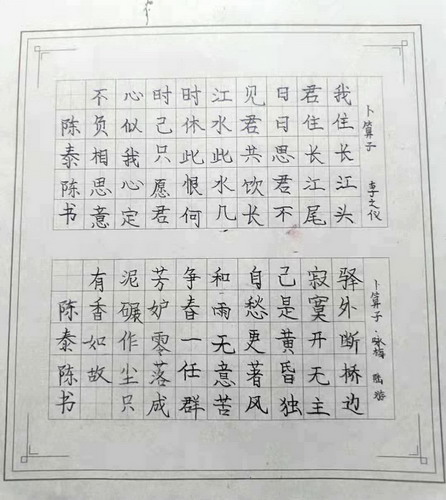 卜算子 李之仪
我住长江头
君住长江尾
日日思君不
见君共饮长
江水此水几
时休此恨何
时己只愿君
心似我心定
不负相思意
陈泰陈书
卜算子·咏梅 陆游
驿外断桥边
寂寞开无主
己是黄昏独
自愁更著风
和雨无意苦
争春一任群
芳妒零落成
泥碾作尘只
有香如故
陈泰陈书